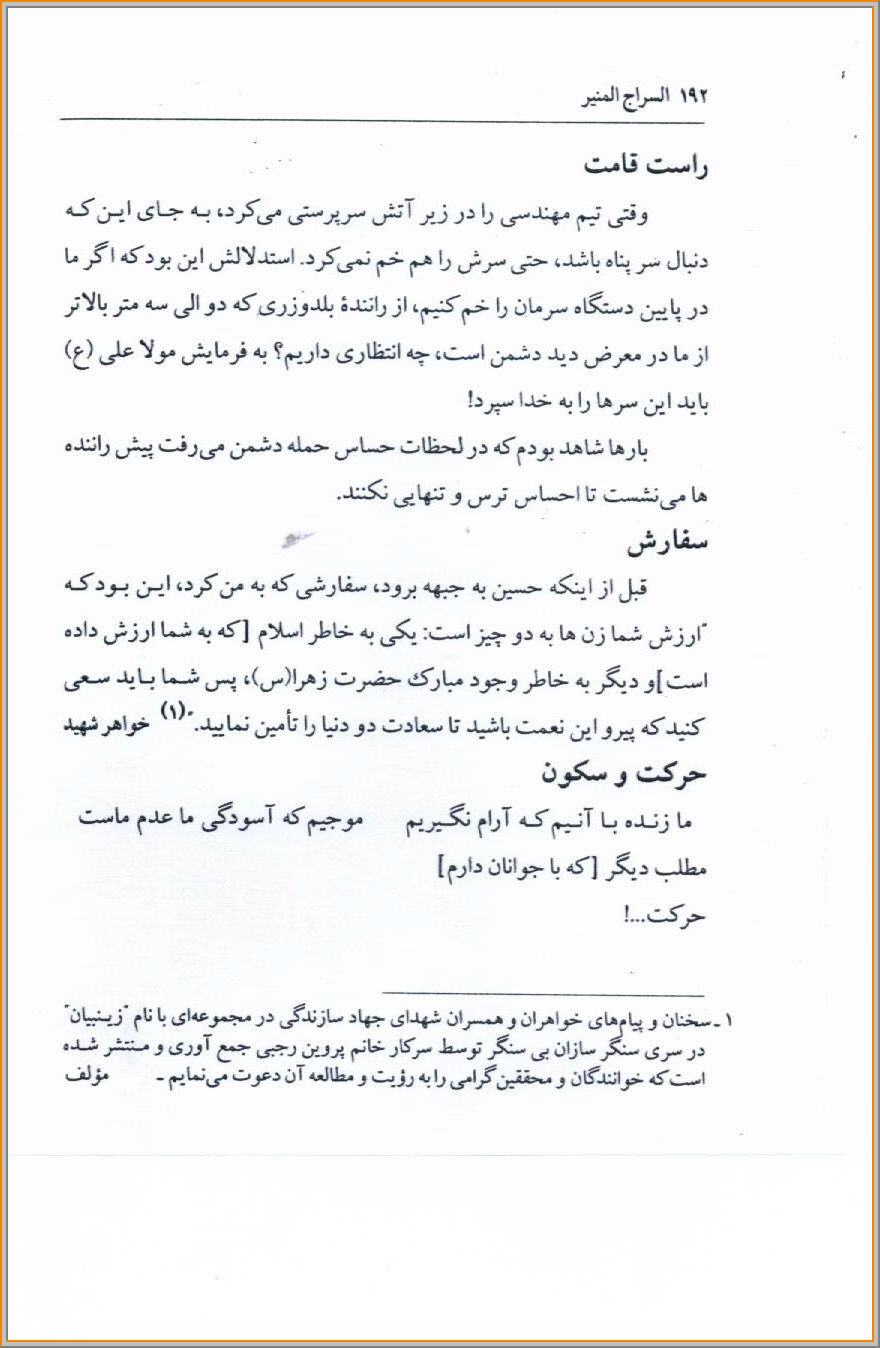 ۱۹۲ السراج المنیر
راست قامت
وقتی تیم مهندسی را در زیر آتش سرپرستی می‌کرد، به جای این که
دنبال سر پناه باشد، حتی سرش را هم خم نمی‌کرد. استدلالش این بود که اگر ما
در پایین دستگاه سرمان را خم کنیم، از رانندهٔ بلدوزری که دو الی سه متر بالاتر
از ما در معرض دید دشمن است، چه انتظاری داریم؟ به فرمایش مولا علی (ع)
باید این سرها را به خدا سپرد!
بارها شاهد بودم که در لحظات حساس حمله دشمن می‌رفت پیش راننده
ها می‌نشست تا احساس ترس و تنهایی نکنند.
سفارش
قبل از اینکه حسین به جبهه برود، سفارشی که به من کرد، این بود که
"ارزش شما زن ها به دو چیز است: یکی به خاطر اسلام [که به شما ارزش داده
است] و دیگر به خاطر وجود مبارک حضرت زهرا(س)، پس شما باید سعی
کنید که پیرو این نعمت باشید تا سعادت دو دنیا را تأمین نمایید."(۱) خواهر شهید
حرکت و سکون
ما زنده با آنیم که آرام نگیریم موجیم که آسودگی ما عدم ماست
مطلب دیگر [که با جوانان دارم]
حرکت...!
۱ـ سخنان و پیام‌های خواهران و همسران شهدای جهاد سازندگی در مجموعه‌ای با نام "زینبیان"
در سری سنگر سازان بی سنگر توسط سرکار خانم پروین رجبی جمع آوری و منتشر شده
است که خوانندگان و محققین گرامی را به رؤیت و مطالعه آن دعوت می‌نمایم ـ مؤلف